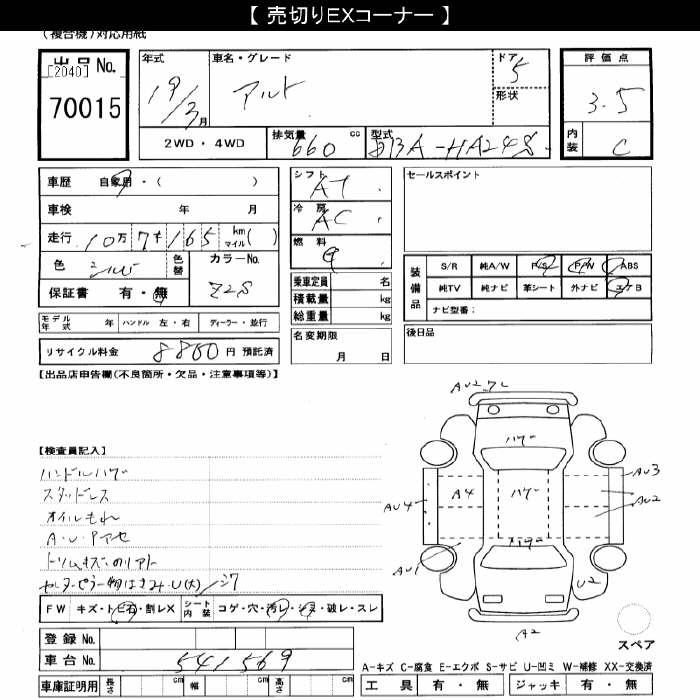 【 売切りEXコーナー 】
(複合機)対応用紙
出品No. [2040]
70015
年式 19/3月
車名・グレード アルト
ドア 5
形状
評価点 3.5
内装 C
2WD・4WD
排気量 660 cc
型式 HA24S
車歴 自家用・( )
車検 年 月
走行 10万7千165 km マイル( )
色 シルバー 色替
カラーNo. Z2S
保証書 有・無
シフト AT
冷房 AC
燃料
乗車定員 名
積載量 kg
総重量 kg
セールスポイント
装備品
S/R 純A/W P/S P/W ABS
純TV 純ナビ 革シート 外ナビ エアB
ナビ型番:
モデル年式 年 ハンドル 左・右 ディーラー・並行
リサイクル料金 8860 円 預託済
名変期限 月 日
後日品
【出品店申告欄(不良箇所・欠品・注意事項等)】
【検査員記入】
ハンドルハゲ
スタッドレス
オイルもれ
A・U・Pアセ
トリムキズ・のリアト
AU2 ワレ
ハゲ
A4
ハゲ
AU3
AU2
AU4
AU1
U2
A2
スペア
FW キズ・トビ石・割レX
シート内装 コゲ・穴・汚レ・シミ・破レ・スレ
登録No.
車台No. 541569
車庫証明用 長さ cm 幅 cm 高さ cm
A-キズ C-腐食 E-エクボ S-サビ U-凹ミ W-補修 XX-交換済
工具 有・無 ジャッキ 有・無